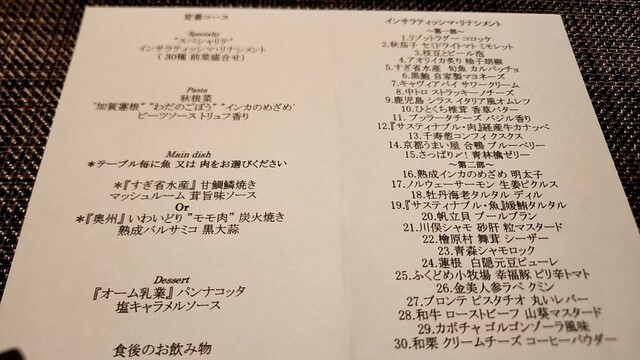 定番コース
Specialty
"スペシャリテ"
インサラティッシマ・リナシメント
(30種 前菜盛合せ)
Pasta
秋根菜
"加賀蓮根" "わだのごぼう" "インカのめざめ"
ビーツソース トリュフ香り
Main dish
＊テーブル毎に魚 又は 肉をお選びください
＊『すぎ省水産』甘鯛鱗焼き
マッシュルーム 茸旨味ソース
Or
＊『奥州』いわいどり"モモ肉" 炭火焼き
熟成バルサミコ 黒大蒜
Dessert
『オーム乳業』パンナコッタ
塩キャラメルソース
食後のお飲み物
インサラティッシマ・リナシメント
～第一部～
1.リゾットラグー コロッケ
2.秋茄子 セミドライトマト ミモレット
3.枝豆とビール泡
4.アオリイカ炙り 柚子胡椒
5.すぎ省水産 旬魚 カルパッチョ
6.黒鮑 自家製マヨネーズ
7.キャヴィア パイ サワークリーム
8.中トロ ストラッキーノチーズ
9.鹿児島 シラス イタリア風オムレツ
10.ひとくち椎茸 香草バター
11.ブッラータチーズ バジル香り
12.『サスティナブル・肉』経産牛カナッペ
13.千寿葱 コンフィ クスクス
14.京都うまい屋 合鴨 ブルーベリー
15.さっぱり〆! 青林檎ゼリー
～第二部～
16.熟成インカのめざめ 明太子
17.ノルウェーサーモン 生姜ピクルス
18.牡丹海老タルタル ディル
19.『サスティナブル・魚』媛鮪タルタル
20.帆立貝 ブールブラン
21.川俣シャモ 砂肝 粒マスタード
22.檜原村 舞茸 シーザー
23.青森シャモロック
24.蓮根 白隠元豆ピューレ
25.ふくどめ小牧場 幸福豚 ピリ辛トマト
26.金美人参ラペ クミン
27.ブロンテ ピスタチオ 丸いレバー
28.和牛 ローストビーフ 山葵マスタード
29.カボチャ ゴルゴンゾーラ風味
30.和栗 クリームチーズ コーヒーパウダー